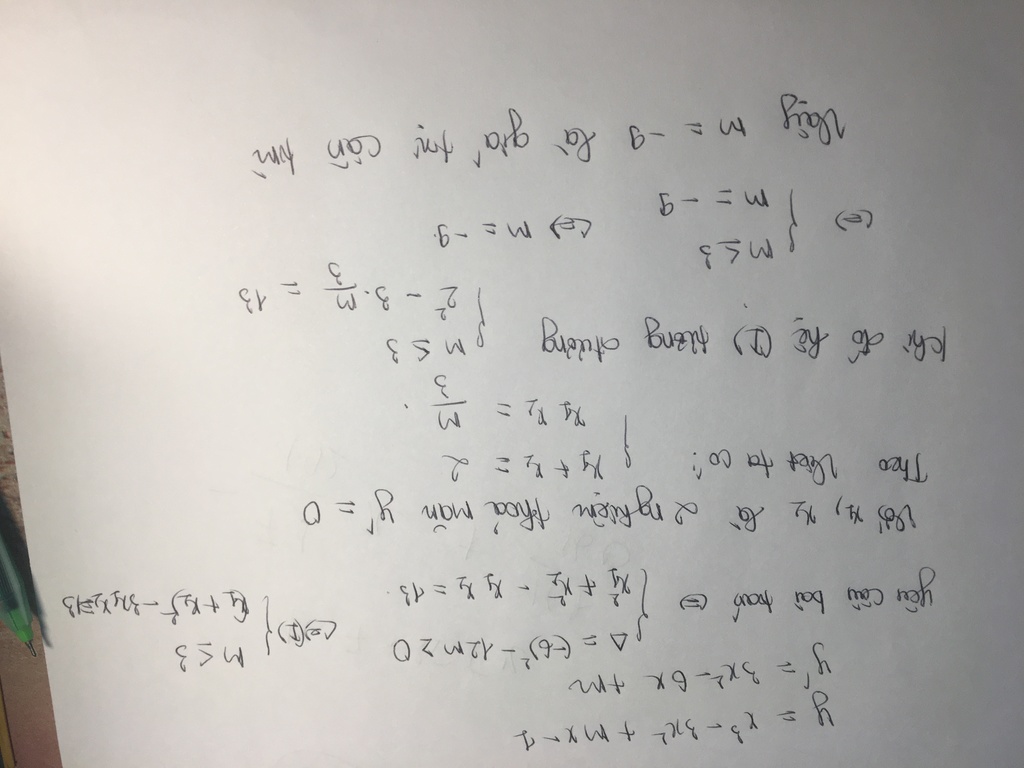 y = x³ - 3x² + mx - 1
y' = 3x² - 6x + m
yêu cầu bài toán ⇔ { Δ = (-6)² - 12m ≥ 0 ⇔ (I) { m ≤ 3
x₁² + x₂² - x₁x₂ = 13. (x₁ + x₂)² - 3x₁x₂ = 13
Với x₁, x₂ là 2 nghiệm thoả mãn y' = 0
Theo Viet ta có: { x₁ + x₂ = 2
x₁x₂ = m/3.
Khi đó hệ (I) tương đương { m ≤ 3
2² - 3.m/3 = 13
⇔ { m ≤ 3
m = -9 ⇔ m = -9.
Vậy m = -9 là giá trị cần tìm